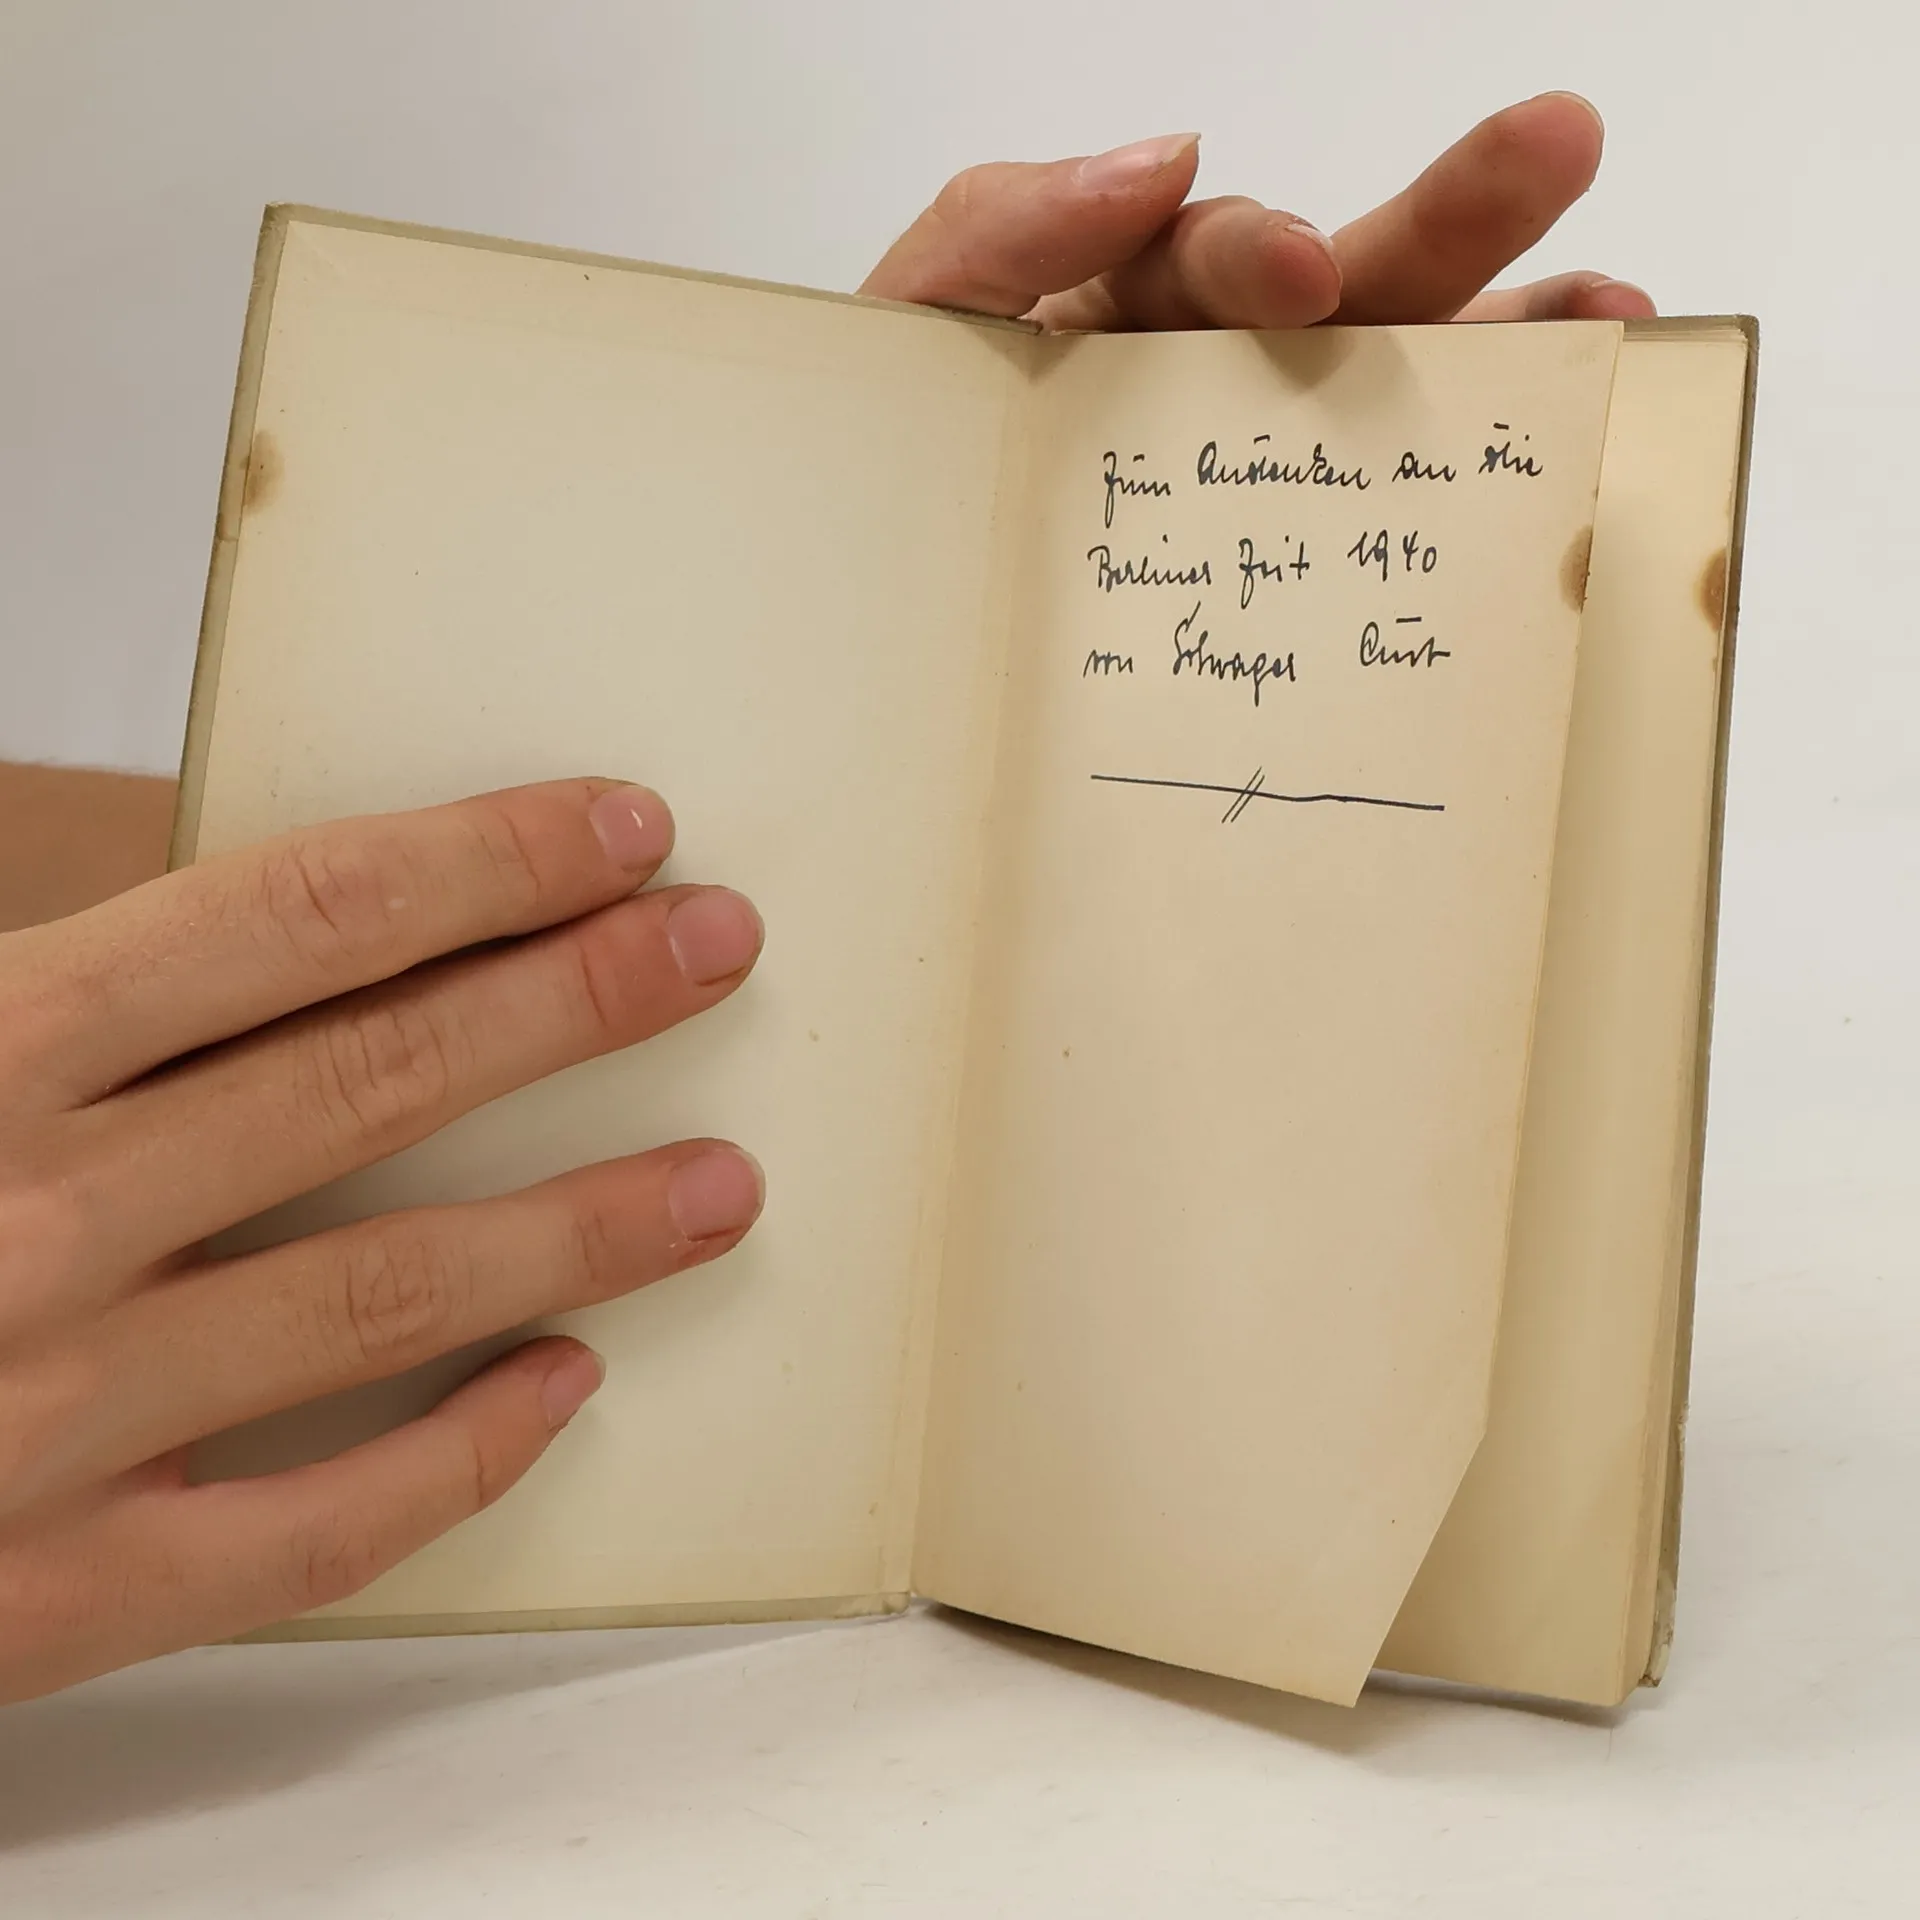 Zum Andenken an die
Berliner Zeit 1940
von Schwager Curt